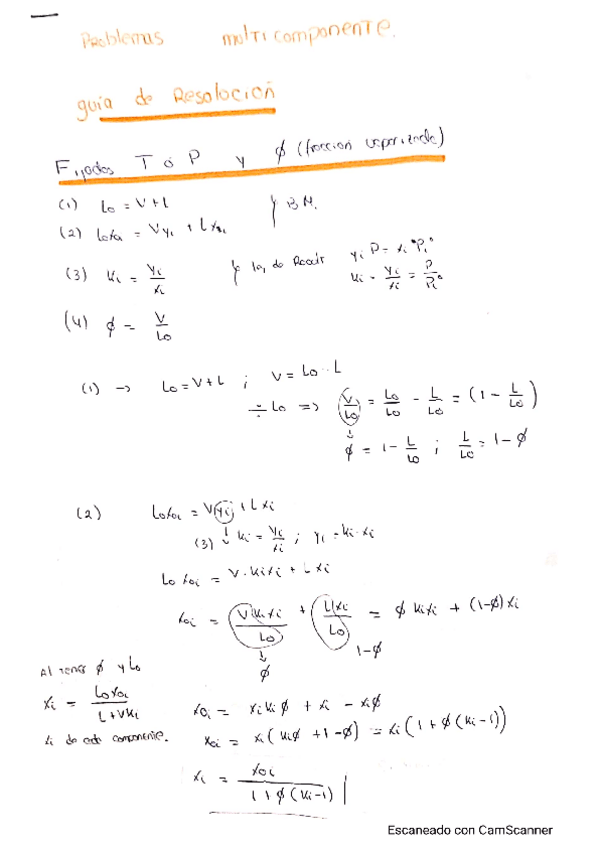 Problemas multicomponente.
guia de Resolución
Fijados T ó P y ϕ (fraccion vaporizada)
(1) Lo = V + L } B.M.
(2) Lo xoi = V yi + L xi
(3) Ki = yi/xi } ley de Raoult yi P = xi Pi°
Ki = yi/xi = P/Pi°
(4) ϕ = V/Lo
(1) → Lo = V + L ; V = Lo - L
÷ Lo => V/Lo = Lo/Lo - L/Lo = (1 - L/Lo)
ϕ = 1 - L/Lo ; L/Lo = 1 - ϕ
(2) Lo xoi = V yi + L xi
(3) ↓ Ki = yi/xi ; yi = Ki · xi
Lo xoi = V · Ki xi + L xi
xoi = V Ki xi / Lo + L xi / Lo = ϕ Ki xi + (1-ϕ) xi
ϕ 1-ϕ
Al tener ϕ y Lo
xi = Lo xoi / L + V Ki
xi de cada componente.
xoi = xi Ki ϕ + xi - xi ϕ
xoi = xi (Ki ϕ + 1 - ϕ) = xi (1 + ϕ (Ki - 1))
xi = xoi / 1 + ϕ (Ki - 1)
Escaneado con CamScanner